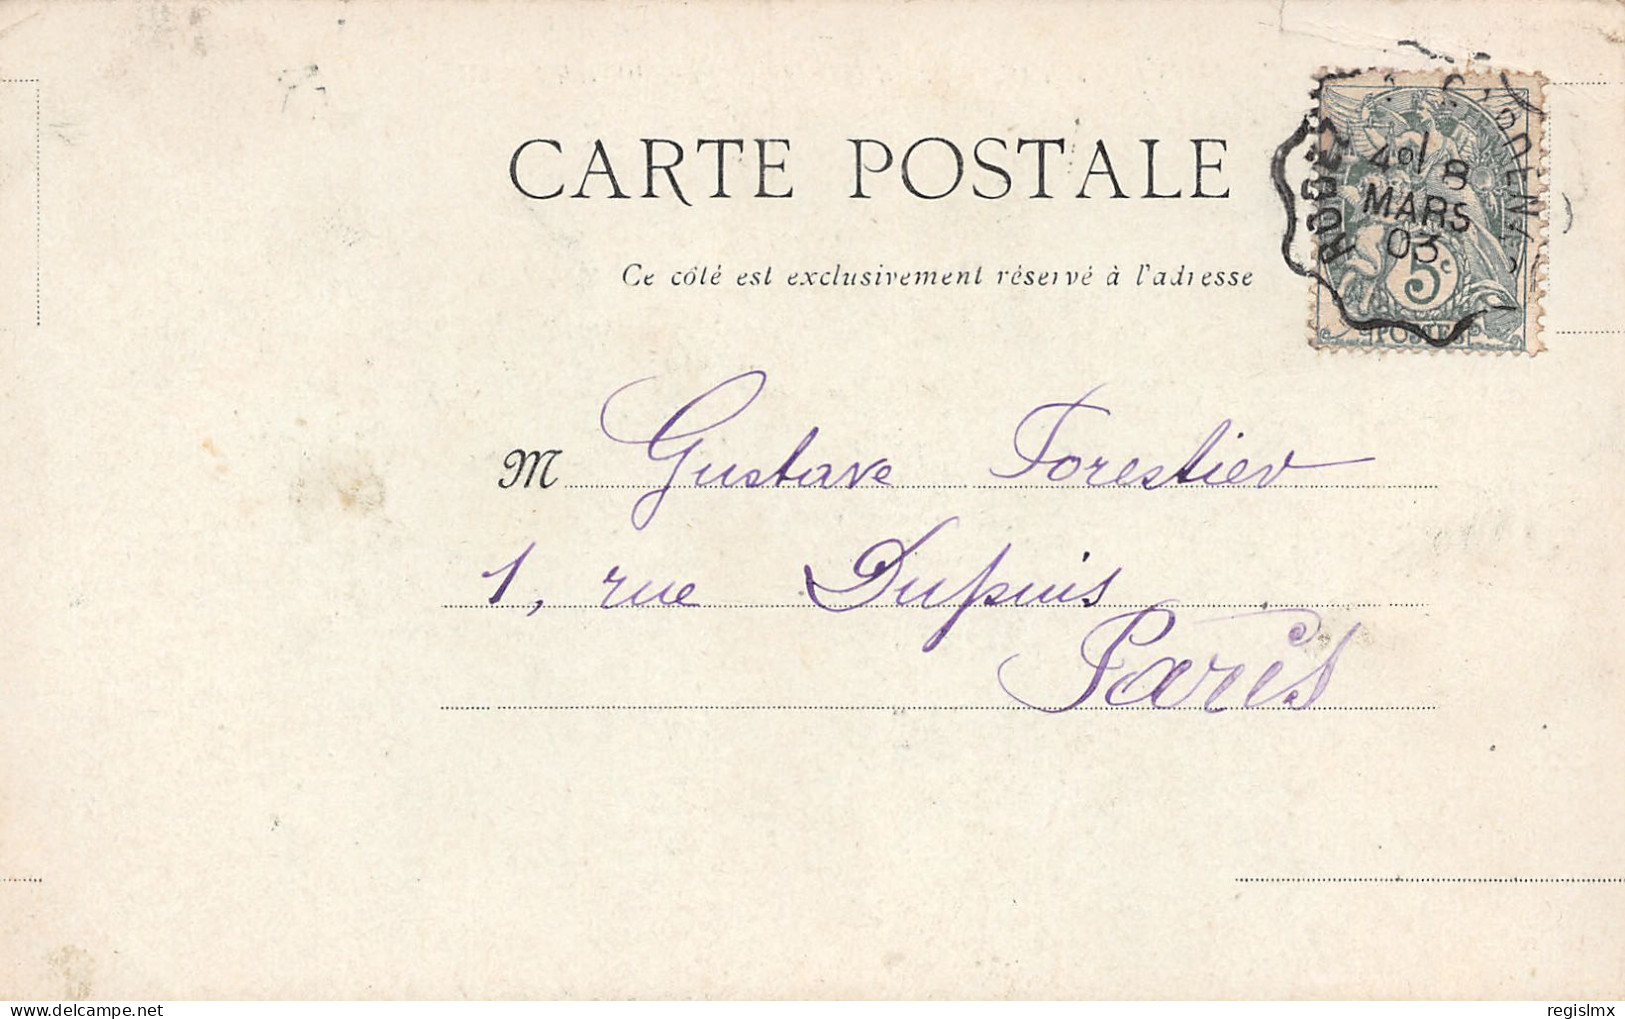 CARTE POSTALE
Ce côté est exclusivement réservé à l'adresse
RODEZ
4º/ 8
MARS
03
5c
POSTES
M Gustave Forestier
1, rue Dupuis
Paris
www.delcampe.net
regislmx